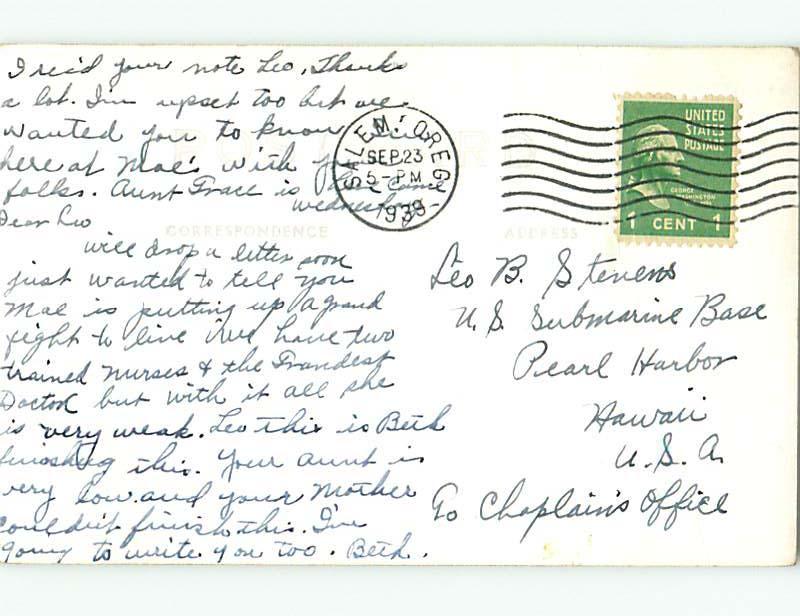 I rec'd your note Leo. Thanks
a lot. I'm upset too but we
wanted you to know
here at Mae's with your
folks. Aunt Grace is here came
wednesday
Dear Leo
will drop a letter soon
just wanted to tell you
Mae is putting up a grand
fight to live we have two
trained nurses & the Grandest
Doctor but with it all she
is very weak. Leo this is Beth
finishing this. Your aunt is
very low. and your Mother
couldn't finish this. I'm
going to write you too. Beth.
SALEM, OREG
SEP 23
5-PM
1939
UNITED
STATES
POSTAGE
GEORGE
WASHINGTON
1 CENT 1
POST CARD
CORRESPONDENCE
ADDRESS
Leo B. Stevens
U.S. Submarine Base
Pearl Harbor
Hawaii
U.S.A.
Go Chaplain's Office